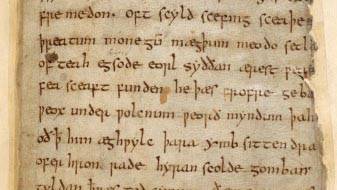 fremedon. oft scyld scefing sceaþe
þreatum monegū mægþum meodo setl
of teah egsode eorl syððan ærest ƿe
fea sceaft funden he þæs frofre geba
ƿeox under ƿolcnum ƿeorð myndum þah
oð ꝥ him æghƿylc þara ymb sittendra
ofer hron rade hyran scolde gomban
gyldan ꝥ ƿæs